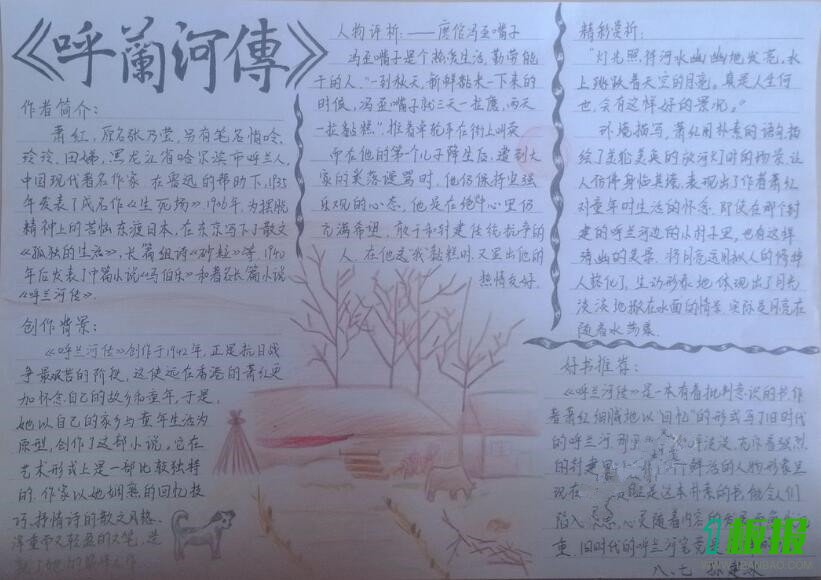 《呼蘭河傳》
作者简介:
萧红,原名张乃莹,另有笔名悄吟、
玲玲、田娣,黑龙江省哈尔滨市呼兰人,
中国现代著名作家.在鲁迅的帮助下,1935
年发表了成名作《生死场》.1936年,为摆脱
精神上的苦恼东渡日本,在东京写下了散文
《孤独的生活》,长篇组诗《砂粒》等.1940
年后发表了中篇小说《马伯乐》和著名长篇小说
《呼兰河传》.
创作背景:
《呼兰河传》创作于1942年,正是抗日战
争最艰苦的阶段,这使远在香港的萧红更
加怀念自己的故乡和童年,于是,
她以自己的家乡与童年生活为
原型,创作了这部小说,它在
艺术形式上是一部比较独特
的.作家以她娴熟的回忆技
巧、抒情诗的散文风格、
浑重而又轻盈的文笔,造
人物评析:——磨倌冯歪嘴子
冯歪嘴子是个热爱生活,勤劳能
干的人.“一到秋天,新鲜黏米一下来的
时候,冯歪嘴子就三天一拉磨,两天
一拉黏糕”.推着单轮车在街上叫卖
而在他的第一个儿子降生后,遭到大
家的笑落谩骂时,他仍保持坚强
乐观的心态,他是在绝中心里仍
充满希望,敢于和封建传统抗争的
人.在他送“我”黏糕时,又显出他的
热情友好.
精彩赏析:
“灯光照得河水幽幽地发亮,水
上跳跃着天空的月亮.真是人生何
也,会有这样好的景况。”
环境描写,萧红用朴素的语句描
绘了美轮美奂的放河灯时的场景,让
人仿佛身临其境,表现出了作者萧红
对童年时生活的怀念.即使在那个封
建的呼兰河边的小村子里,也有这样
绮幽的美景.将月亮运用拟人的修辞
人格化了,生动形象地体现出了月光
淡淡地撒在水面的情景.实际是月亮在
随着水荡漾.
好书推荐:
《呼兰河传》是一本有着批判意识的书,作
者萧红细腻地以“回忆”的形式写了旧时代
的呼兰河
的封建 鲜活的人物形象呈
现在 是这本朴素的书,能令人们
陷入 心灵随着内容的
重.旧时代的呼兰河究竟
八、七
1板报
WWW.1BANBAO.COM